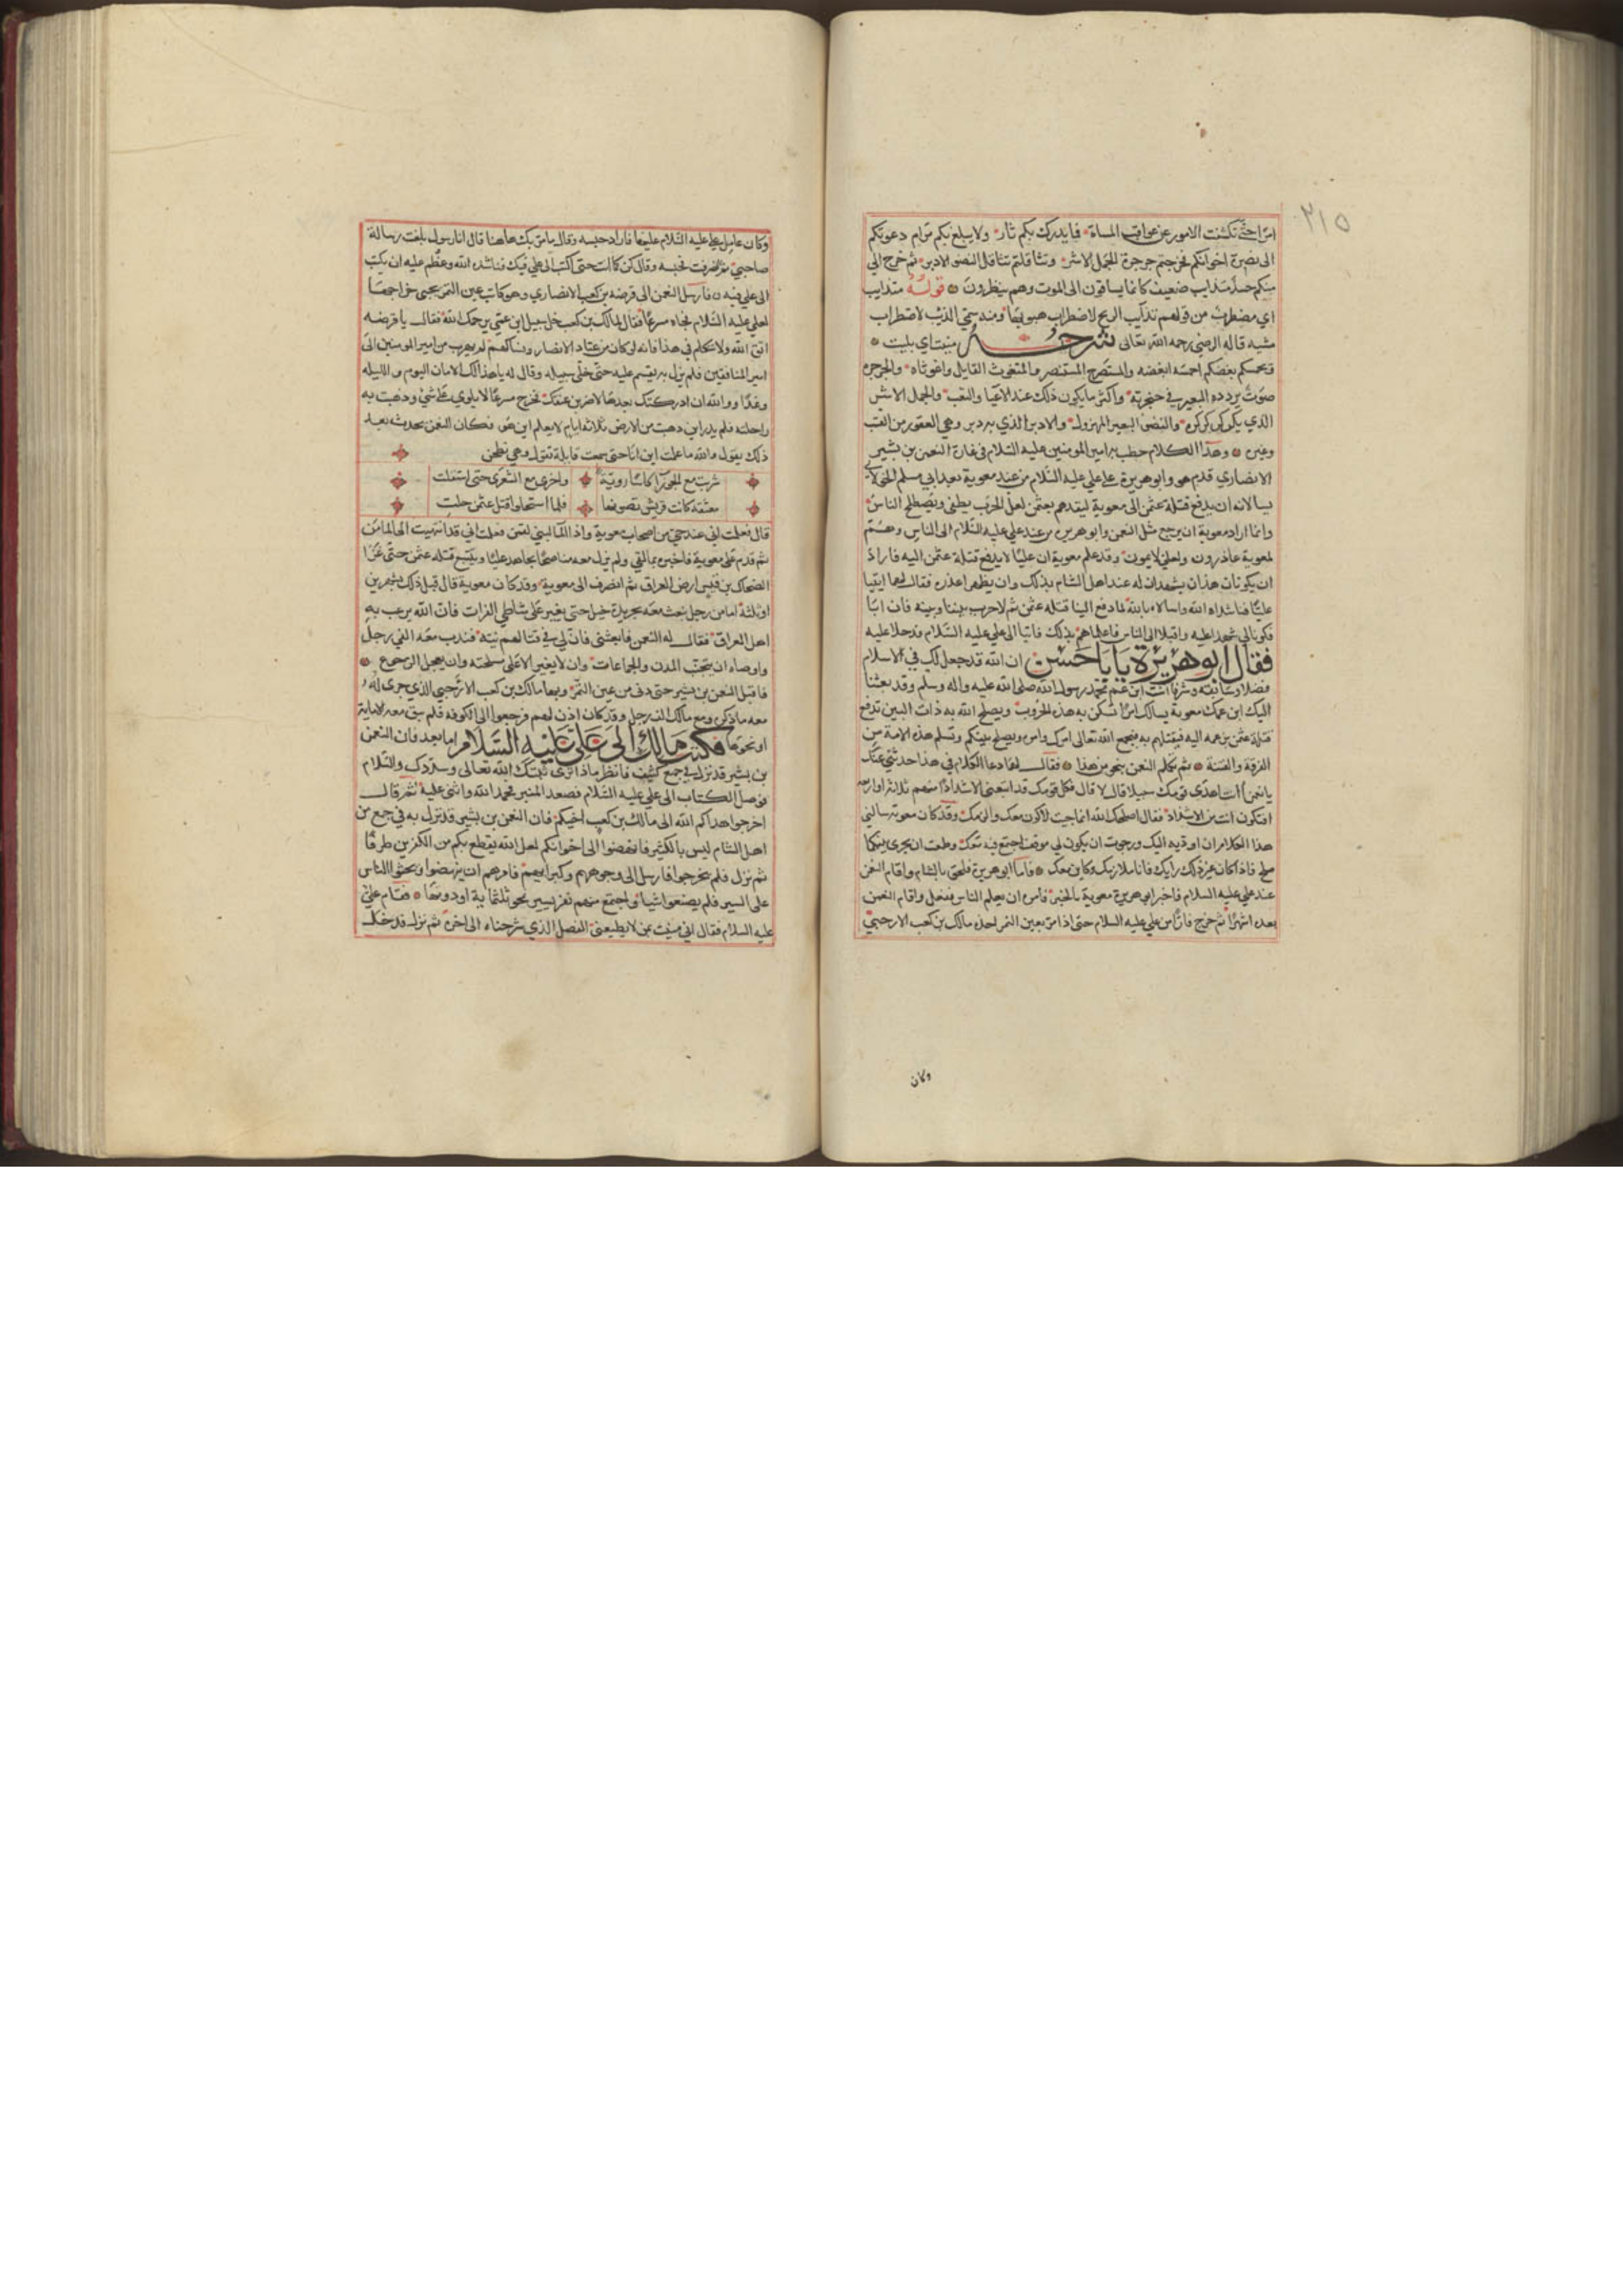 ٢١٥
امرا حتى تكشف الامور عن عواقب المساة فما يدرك بكم ثار ولا يبلغ بكم مرام دعوتكم
الى نصرة اخوانكم فجرجرتم جرجرة الجمل الاسر وتثاقلتم تثاقل النضو الادبر ثم خرج الي
منكم جنيد متذايب ضعيف كانما يساقون الى الموت وهم ينظرون قوله متذايب
اي مضطرب من قولهم تذايب الريح اي اضطرب هبوبها ومنه سمي الذيب لاضطراب
مشيه قاله الرضي رحمه الله تعالى شرح منيت اي بليت
وبحمسكم بغضبكم احمسه اغضبه والمستصرخ المستنصر والمتغوث القايل واغوثاه والجرجرة
صوت يردده البعير في حنجرته واكثر ما يكون ذلك عند الاعيا والتعب والجمل الاسر
الذي بكركرته والنضو البعير المهزول والادبر الذي به دبر وهي العقور من القتب
وغيره وهذا الكلام خطب به امير المومنين عليه السلام في غارة النعمن بن بشير
الانصاري قدم هو وابو هريرة على علي عليه السلام من عند معوية بعد ابي مسلم الخولاني
يسالانه ان يدفع قتلة عثمن الى معوية ليقيدهم بعثمن لعل الحرب يطفى ويصطلح الناس
وانما اراد معوية ان يرجع مثل النعمن وابو هريرة من عند علي عليه السلام الى الناس وهم
لمعوية عاذرون ولعلي لايمون وقد علم معوية ان عليا لا يدفع قتلة عثمن اليه فاراد
ان يكونان هذان يشهدان له عند اهل الشام بذلك وان يظهر اعذره فقال لهما ايتيا
عليا فناشداه الله واسالاه بالله لما دفع الينا قتلة عثمن ثم لا حرب بيننا وبينه فان ابا
فكونا لي شهدا عليه واقبلا الى الناس فاعلماهم بذلك فاتيا الى علي عليه السلام فدخلا عليه
فقال ابو هريرة يا با حسن ان الله قد جعل لك في الاسلام
فضلا وسابقة وشرفا انت ابن عم محمد رسول الله صلى الله عليه واله وسلم وقد بعثنا
اليك ابن عمك معوية يسالك امرا تسكن به هذه الحروب ويصلح الله به ذات البين تدفع
قتلة عثمن بن عمه اليه فيقتلهم به فيجمع الله تعالى امرك وامره ويصلح بينكم وتسلم هذه الامة من
الفرقة والفتنة ثم تكلم النعمن بنحو من هذا فقال لهما دعا الكلام في هذا حدثني عنك
يا نعمن انت اهدى قومك سبيلا قال لا قال فكل قومك قد اتبعني الا شذاذا منهم ثلاثة او اربعة
افتكون انت من الاشذاذ فقال اصلحك الله انما جيت لاكون معك والزمك وقد كان معوية سالني
هذا الكلام ان اوديه اليك ورجوت ان يكون لي موقف اجتمع فيه معك وطمعت ان يجري بينكما
صلح فاذا كان غير ذلك رايك فانا ملازمك وكاين معك فاما ابو هريرة فلحق بالشام واقام النعمن
عند علي عليه السلام فاخبر ابو هريرة معوية بالخبر فامره ان يعلم الناس ففعل واقام النعمن
بعده اشهرا ثم خرج فارا من علي عليه السلام حتى اذا مر بعين التمر اخذه مالك بن كعب الارحبي
وكان
وكان عامل علي عليه السلام عليها فاراد حبسه وقال ما مر بك هاهنا قال انا رسول بلغت رسالة
صاحبي ثم انصرفت فحبسه وقال كن كما انت حتى اكتب الى علي فيك فناشده الله وعظم عليه ان يكتب
الى علي فيه فارسل النعمن الى قرضه بن كعب الانصاري وهو كاتب عين التمر يجبي خراجها
لعلي عليه السلام فجاه مسرعا فقال لمالك بن كعب خل سبيل ابن عمي يرحمك الله فقال يا قرضه
اتق الله ولا تتكلم في هذا فانه لو كان من عباد الانصار ونساكهم لم يهرب من امير المومنين الى
امير المنافقين فلم يزل به يقسم عليه حتى خلى سبيله وقال له يا هذا لك الامان اليوم والليله
وغدا ووالله ان ادركتك بعدها لاضربن عنقك فخرج مسرعا لا يلوي على شي وذهبت به
راحلته فلم يدر اين ذهبت من الارض ثلاثة ايام لا يعلم اين هو فكان النعمن يحدث بعد
ذلك يقول والله ما علمت اين انا حتى سمعت قايلة تقول وهي تطحن
شربت مع الجوزا كاسا روية واخرى مع الشعرى حتى استقلت
معتقة كانت قريش تصونها فلما استحلوا قتل عثمن حلت
قال فعلمت اني عند حي من اصحاب معوية واذا الما لبني القين فعلمت اني قد انتهيت الى المامن
ثم قدم على معوية فاخبره بما لقي ولم يزل معه مناصحا مجاهدا عليا ويتتبع قتلة عثمن حتى غزا
الضحاك بن قيس ارض العراق ثم انصرف الى معوية وقد كان معوية قال قبل ذلك بشهرين
او ثلثة اما من رجل نبعث معه بجريدة خيل حتى يغير على شاطي الفرات فان الله يرعب به
اهل العراق فقال له النعمن فابعثني فان لي في قتالهم نية فندب معه الفي رجل
واوصاه ان يتجنب المدن والجماعات وان لا يغير الا على مسلحة وان يعجل الرجوع
فاقبل النعمن بن بشير حتى دنى من عين التمر وبها مالك بن كعب الارحبي الذي جرى له
معه ما ذكر ومع مالك الف رجل وقد كان اذن لهم فرجعوا الى الكوفه فلم يبق معه الا ماية
او نحوها فكتب مالك الى علي عليه السلام اما بعد فان النعمن
بن بشير قد نزل في جمع كثيف فانظر ماذا ترى ثبتك الله تعالى وسددك والسلام
فوصل الكتاب الى علي عليه السلام فصعد المنبر فحمد الله واثنى عليه ثم قال
اخرجوا هداكم الله الى مالك بن كعب اخيكم فان النعمن بن بشير قد نزل به في جمع من
اهل الشام ليس بالكثير فانهضوا الى اخوانكم لعل الله يقطع بكم من الكافرين طرفا
ثم نزل فلم يخرجوا فارسل الى وجوههم وكبرايهم فامرهم ان ينهضوا ويحثوا الناس
على السير فلم يصنعوا شيا واجتمع منهم نفر يسير نحو ثلثماية او دونها فقام علي
عليه السلام فقال اني منيت بمن لا يطيعني الفصل الذي شرحناه الى اخره ثم نزل فدخل